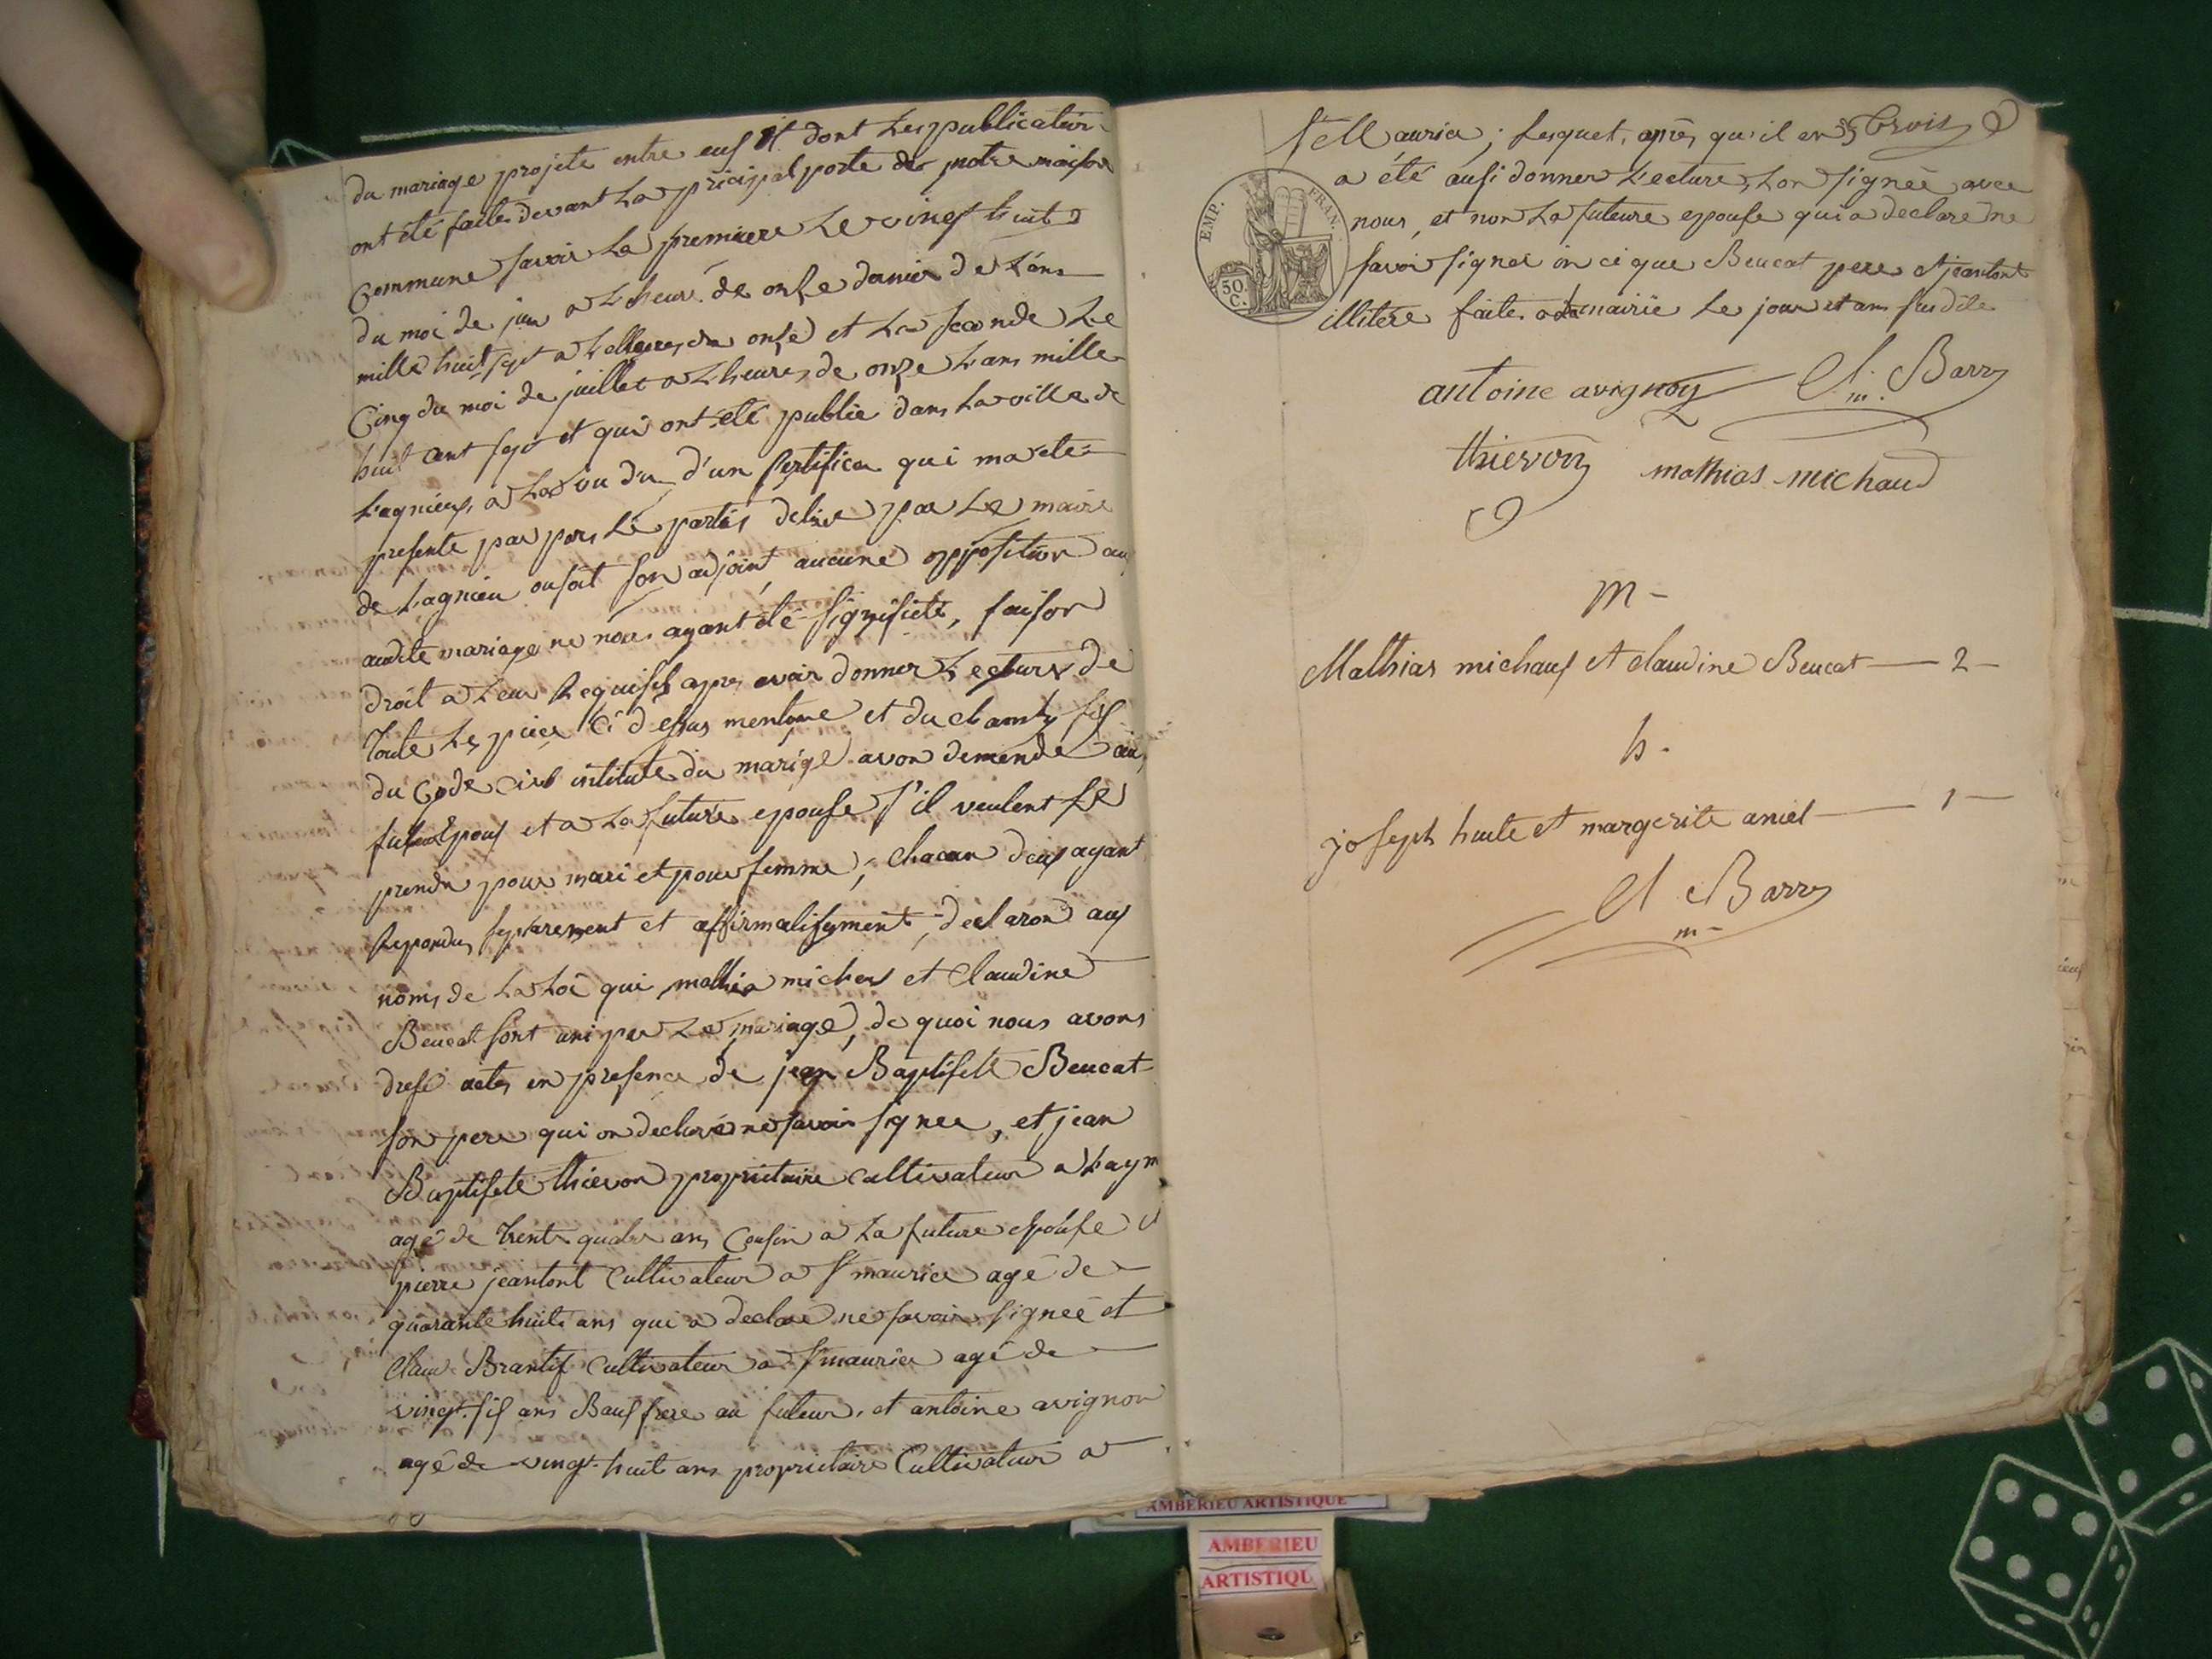 du mariage projeté entre eux et dont les publication
ont été faites devant La pricipal porte de notre maison
Commune savoir La premiere Le vingt huit
du moi de juin a L'heure de onze dernier de L'ans
mille huit sept a L'heure de onze et La seconde Le
Cinq du moi de juillet a L'heures de onze L'ans mille
huit cent sept et qui ont été publie dans La ville de
Lagnieux, a La vu du d'un sertifica qui ma été
presente par Les partis delivre par Le maire
de Lagnieu ou soit son adjoint aucune opposition au
audite mariage ne nous ayant été signifiéte, faison
droit a Leur Requisit apres avoir donner Lecture de
Toute Les pieces Ci dessus mentonne et du chapitre six
du Code Civil intitute du marige avon demende au
futur Epoux et a La future epouse s'il veulent se
prendre pour mari et pour femme, Chacun deux ayant
Repondu separement et affirmativement, declaron aux
noms de La Loi qui mathia michau et Claudine
Beucat sont uni par Le mariage, de quoi nous avons
dresé actes en presence de jean Baptiste Beucat
son pere qui on declaré ne savoir signer, et jean
Baptiste thievon propriétaire cultivateur a Layn
agé de Trente quatre ans Cousin a La future epouse et
pierre jeantont Cultivateur a St maurice agé de
quarante huite ans qui a declaré ne savoir signeé et
Claude Brantif Cultivateur a St maurice agé de
vingt six ans Baux frere au futeur, et antoine avignon
agé de vingt huit ans proprietaire Cultivateur a
St Maurice; Lesquet, apres qu'il en Trois
a été ausi donner Lecture, Lon signée avec
nous, et non La future epouse qui a declare ne
savoir signer in ci que Beucat pere et jeantont
illitére faite a La mairie Le jour et an susdite
EMP. FRAN.
50. C.
antoine avignon Cl. Barry m.
thievon mathias michaud
M-
Mathias michaux et claudine Beucat — 2 —
h.
joseph huite et margerite aniel — 1 —
Cl Barry
m-
AMBERIEU ARTISTIQUE
AMBERIEU
ARTISTIQU